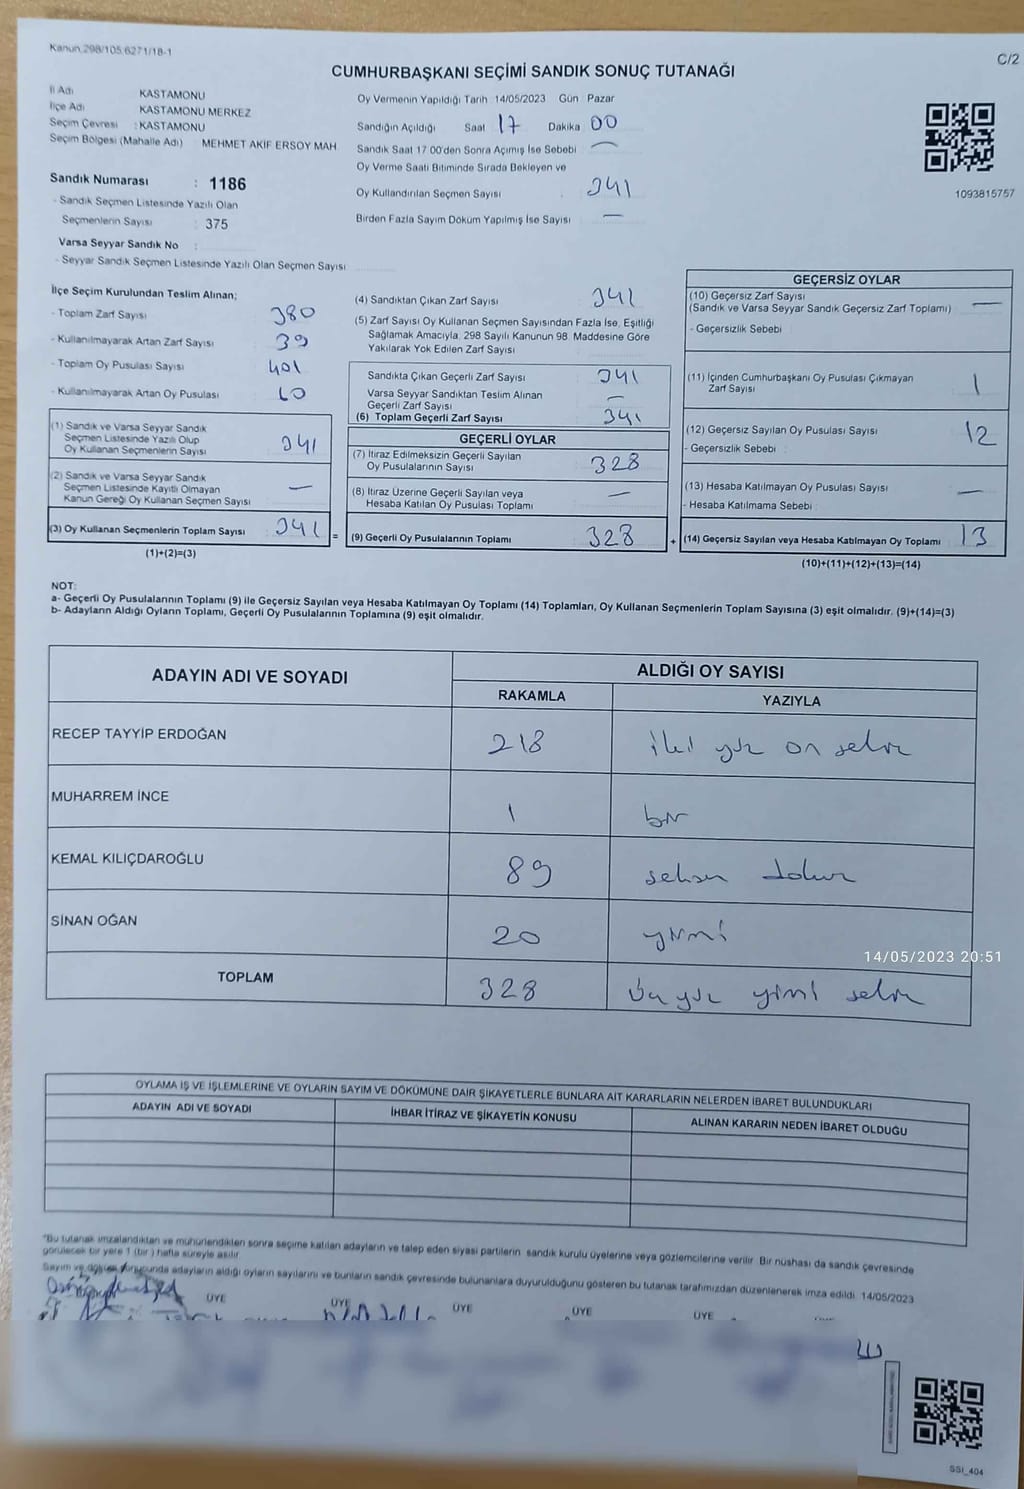 Kanun.298/105.6271/18-1
C/2
CUMHURBAŞKANI SEÇİMİ SANDIK SONUÇ TUTANAĞI
İl Adı KASTAMONU
İlçe Adı KASTAMONU MERKEZ
Seçim Çevresi : KASTAMONU
Seçim Bölgesi (Mahalle Adı) MEHMET AKİF ERSOY MAH
Sandık Numarası : 1186
- Sandık Seçmen Listesinde Yazılı Olan
Seçmenlerin Sayısı : 375
Varsa Seyyar Sandık No :
- Seyyar Sandık Seçmen Listesinde Yazılı Olan Seçmen Sayısı
Oy Vermenin Yapıldığı Tarih 14/05/2023 Gün Pazar
Sandığın Açıldığı Saat 17 Dakika 00
Sandık Saat 17.00'den Sonra Açımış İse Sebebi —
Oy Verme Saati Bitiminde Sırada Bekleyen ve
Oy Kullandırılan Seçmen Sayısı : 341
Birden Fazla Sayım Döküm Yapılmış İse Sayısı —
1093815757
İlçe Seçim Kurulundan Teslim Alınan;
- Toplam Zarf Sayısı 380
- Kullanılmayarak Artan Zarf Sayısı 39
- Toplam Oy Pusulası Sayısı 401
- Kullanılmayarak Artan Oy Pusulası 60
(1) Sandık ve Varsa Seyyar Sandık
Seçmen Listesinde Yazılı Olup
Oy Kullanan Seçmenlerin Sayısı 341
(2) Sandık ve Varsa Seyyar Sandık
Seçmen Listesinde Kayıtlı Olmayan
Kanun Gereği Oy Kullanan Seçmen Sayısı —
(3) Oy Kullanan Seçmenlerin Toplam Sayısı 341 =
(1)+(2)=(3)
(4) Sandıktan Çıkan Zarf Sayısı 341
(5) Zarf Sayısı Oy Kullanan Seçmen Sayısından Fazla İse, Eşitliği
Sağlamak Amacıyla, 298 Sayılı Kanunun 98. Maddesine Göre
Yakılarak Yok Edilen Zarf Sayısı
Sandıkta Çıkan Geçerli Zarf Sayısı 341
Varsa Seyyar Sandıktan Teslim Alınan
Geçerli Zarf Sayısı —
(6) Toplam Geçerli Zarf Sayısı 341
GEÇERLİ OYLAR
(7) İtiraz Edilmeksizin Geçerli Sayılan
Oy Pusulalarının Sayısı 328
(8) İtiraz Üzerine Geçerli Sayılan veya
Hesaba Katılan Oy Pusulası Toplamı —
(9) Geçerli Oy Pusulalarının Toplamı 328 +
GEÇERSİZ OYLAR
(10) Geçersiz Zarf Sayısı
(Sandık ve Varsa Seyyar Sandık Geçersiz Zarf Toplamı) —
- Geçersizlik Sebebi :
(11) İçinden Cumhurbaşkanı Oy Pusulası Çıkmayan
Zarf Sayısı 1
(12) Geçersiz Sayılan Oy Pusulası Sayısı 12
- Geçersizlik Sebebi :
(13) Hesaba Katılmayan Oy Pusulası Sayısı —
- Hesaba Katılmama Sebebi :
(14) Geçersiz Sayılan veya Hesaba Katılmayan Oy Toplamı 13
(10)+(11)+(12)+(13)=(14)
NOT:
a- Geçerli Oy Pusulalarının Toplamı (9) ile Geçersiz Sayılan veya Hesaba Katılmayan Oy Toplamı (14) Toplamları, Oy Kullanan Seçmenlerin Toplam Sayısına (3) eşit olmalıdır. (9)+(14)=(3)
b- Adayların Aldığı Oyların Toplamı, Geçerli Oy Pusulalarının Toplamına (9) eşit olmalıdır.
ADAYIN ADI VE SOYADI ALDIĞI OY SAYISI
RAKAMLA YAZIYLA
RECEP TAYYİP ERDOĞAN 218 iki yüz on sekiz
MUHARREM İNCE 1 bir
KEMAL KILIÇDAROĞLU 89 seksen dokuz
SİNAN OĞAN 20 yirmi
14/05/2023 20:51
TOPLAM 328 üçyüz yirmi sekiz
OYLAMA İŞ VE İŞLEMLERİNE VE OYLARIN SAYIM VE DÖKÜMÜNE DAİR ŞİKAYETLERLE BUNLARA AİT KARARLARIN NELERDEN İBARET BULUNDUKLARI
ADAYIN ADI VE SOYADI İHBAR İTİRAZ VE ŞİKAYETİN KONUSU ALINAN KARARIN NEDEN İBARET OLDUĞU
"Bu tutanak imzalandıktan ve mühürlendikten sonra seçime katılan adayların ve talep eden siyasi partilerin sandık kurulu üyelerine veya gözlemcilerine verilir. Bir nüshası da sandık çevresinde
görülecek bir yere 1 (bir) hafta süreyle asılır.
Sayım ve döküm sonucunda adayların aldığı oyların sayılarını ve bunların sandık çevresinde bulunanlara duyurulduğunu gösteren bu tutanak tarafımızdan düzenlenerek imza edildi. 14/05/2023
ÜYE ÜYE ÜYE ÜYE ÜYE
SSI_404